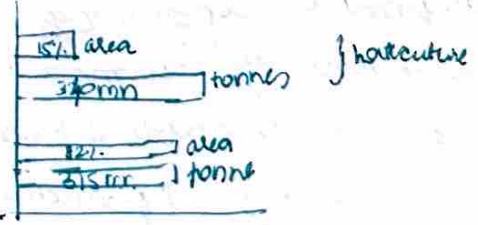 15%. area
320mn tonnes
} horticuture
82%. area
315mn. tonne